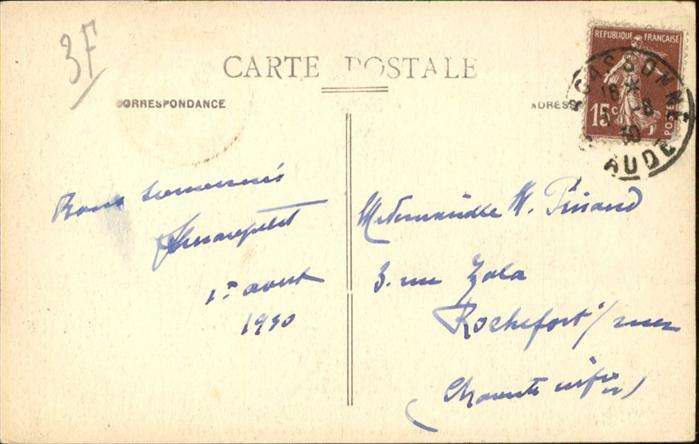 3F
CARTE POSTALE
CORRESPONDANCE
ADRES
RÉPUBLIQUE FRANÇAISE
15c
POSTES
CARCASSONNE
16 *
1 -8
30
AUDE
Bons souvenirs
1er aout
1930
Mademoiselle
3. rue Zola
Rochefort s/mer
(Charente infre)